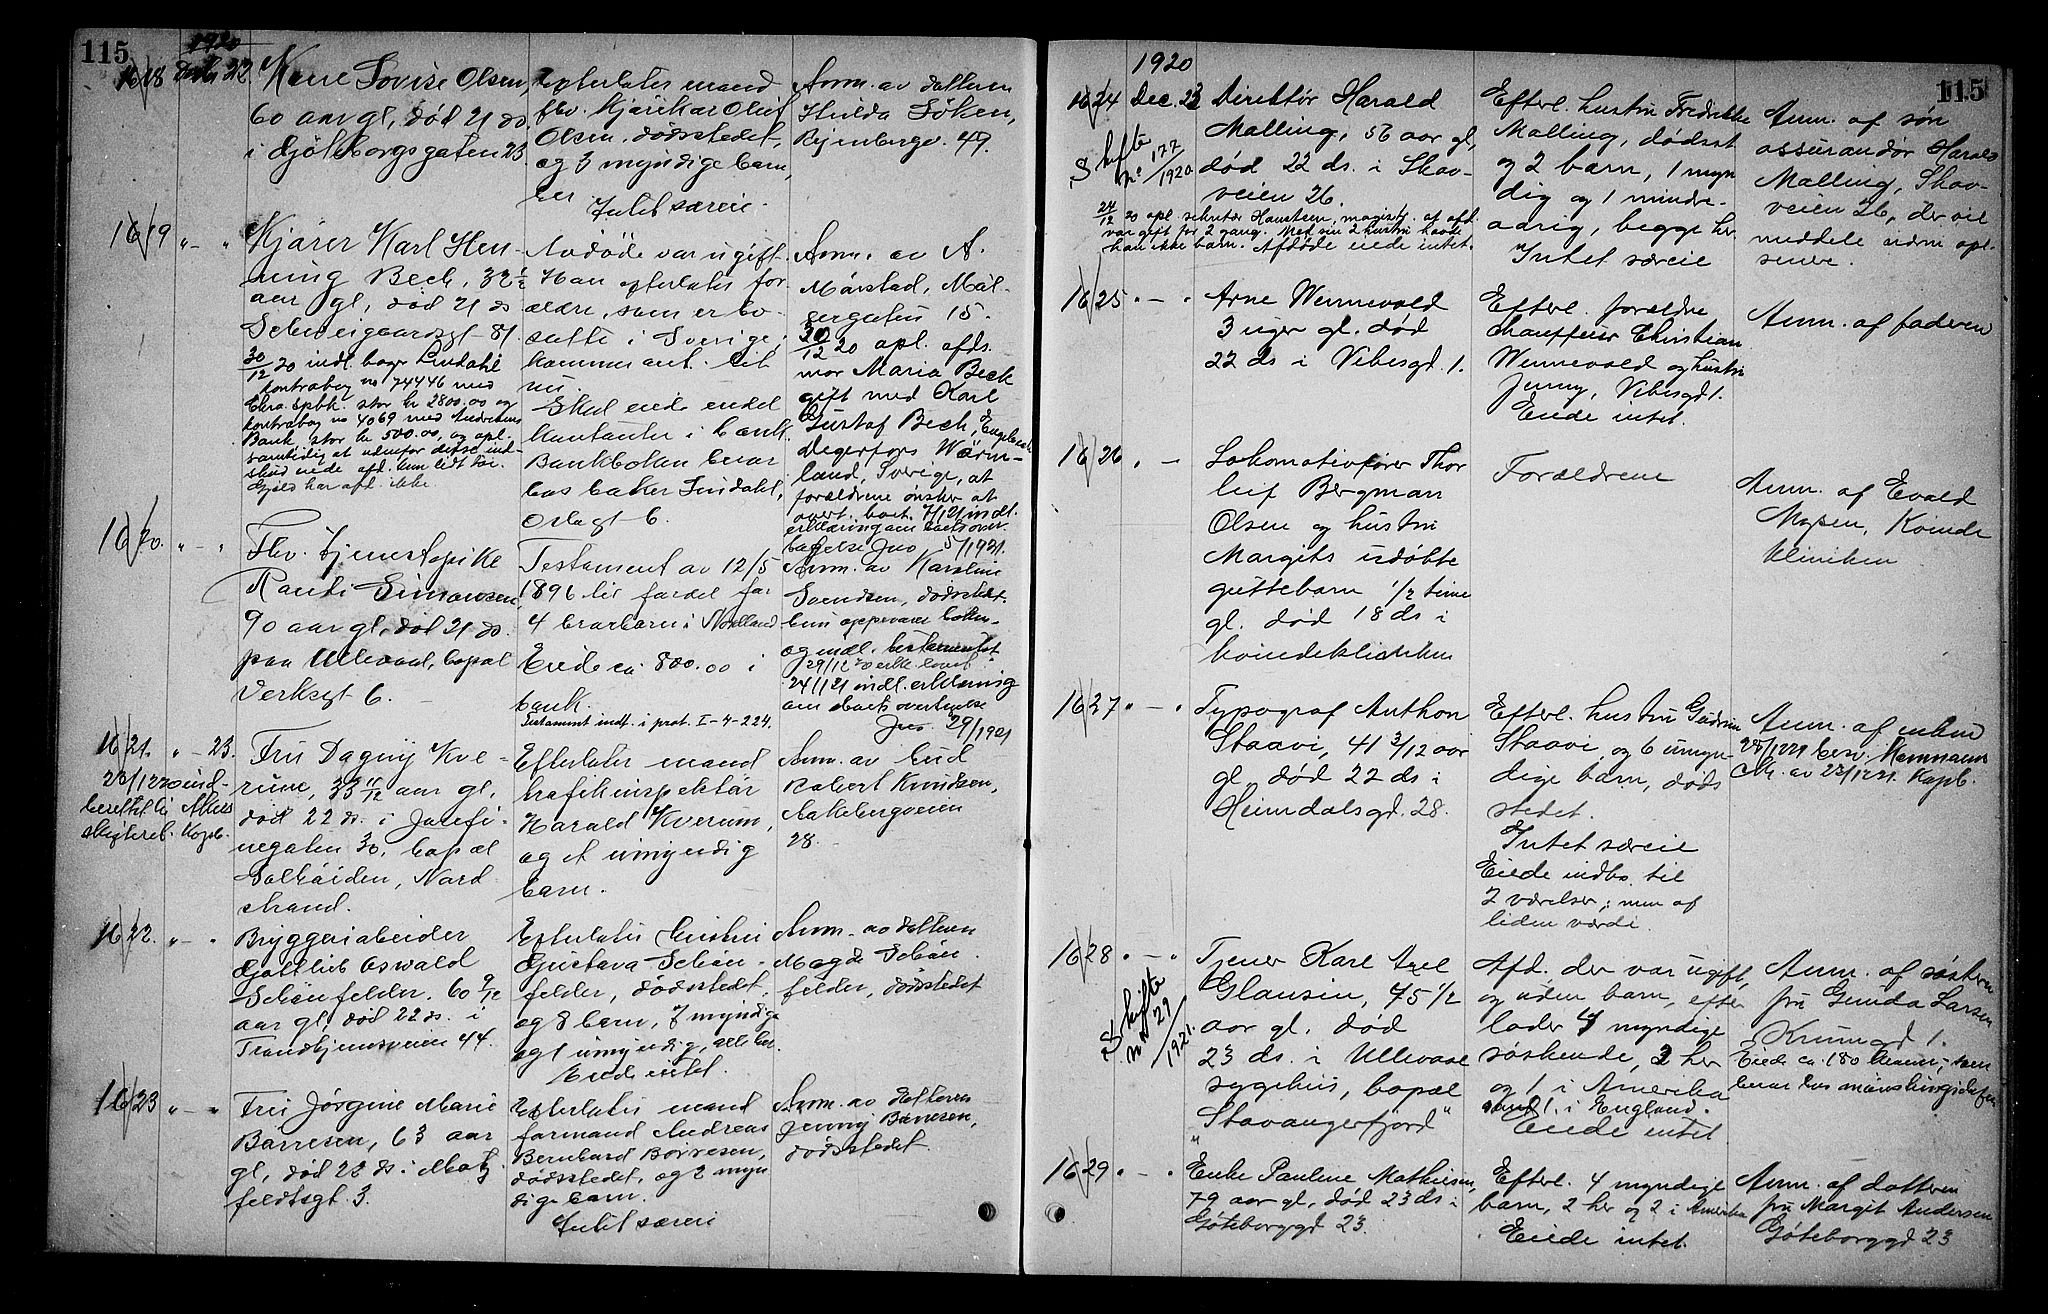 115
1920
1618 Decbr 22.
Karen Lovise Olsen,
60 aar gl, død 21 ds
i Gjøteborgsgaten 23.
Efterlater mand
fhv. kjørekar Oluf
Olsen, dødsstedet,
og 3 myndige barn,
her
Intet særeie.
Anm. av datteren
Hulda
49.
1619 " - "
Kjører Karl Hen-
ning Bech, 32 1/2
aar gl, død 21 ds
Schweigaardsgt 81.
30/12 20 indl.
kontrabog no 74446 med
Chra. Spbk. stor kr 2800.00 og
kontrabog no 4069 med Andresens
Bank, stor kr 500.00, og opl.
samtidig at udenfor disse ind-
skud eiede afd. kun lidt tøi.
Gjæld har afd. ikke.
Avdøde var ugift.
Han efterlater for-
ældre, som er bo-
satte i Sverige,
Skal eiede endel
kontanter i bank.
Bankboken bevar
hos baker Lindahl,
Oslogt 6.
Anm. av A.
Mørstad, Møl-
lergaten 15.
30/12 20 opl. afds.
mor Maria Bech
gift med Karl
Gustaf Bech,
Degerfors Wärm-
land, Sverige, at
forældrene ønsker at
overt. boet. 7/1 21 indl.
erklæring om boets over-
tagelse Jno 5/1921.
1620. " - "
Fhv. tjenestepike
Randi Simonsen,
90 aar gl, død 21 ds.
paa Ullevaal, bopæl
Verksgt 6.
Testament av 12/5
1896 til fordel for
4 brorbarn i Nordland
Eiede ca 800.00 i
bank.
Testament indf. i prot. I-4-224.
Anm. av Karoline
Svendsen, dødsstedet.
hun opbevarer boken
og indl. testamentet
29/12 20
24/1 21 indl. erklæring
om boets overtagelse
Jno. 29/1921
1621. " - 23.
23/12 20 ind-
berettet til Akers
skifteret. Kopb.
Fru Dagny Kve-
rum, 33 11/12 aar gl,
død 22 ds. i Josefi-
negaten 30, bopæl
Solhøiden, Nord-
strand.
Efterlater mand
trafikinspektør
Harald Kverum,
og et umyndig
barn.
Anm. av bud
Robert Knudsen,
Aakebergveien
28.
1622. " - "
Bryggeriarbeider
Gottlieb Oswald
Schönfelder, 60 9/12
aar gl, død 22 ds. i
Trondhjemsveien 44.
Efterlater hustru
Gustava Schön-
felder, dødsstedet,
og 8 barn, 7 myndige
og 1 umyndig, alle her.
Eiede intet.
Anm. av datteren
Magda Schön-
felder, dødsstedet
1623 " - "
Fru Jørgine Marie
Børresen, 63 aar
gl, død 22 ds i Motz-
feldtsgt. 3.
Efterlater mand
formand Andreas
Bernhard Børresen,
dødsstedet, og 2 myn
dige barn.
Intet særeie
Anm. av datteren
Jenny Børresen,
dødsstedet.
1920
115
1624 Dec. 23
Skifte
no 177/1920.
Direktør Harald
Malling, 56 aar gl,
død 22 ds. i Skov-
veien 26.
24/12 20 opl. sekretær Hausteen, magistr. at afd.
var gift for 2 gang. Med sin 2 hustru havde
han ikke barn. Afdøde eiede intet.
Efterl. hustru Fredrikke
Malling, dødsst
og 2 barn, 1 myn
dig og 1 mindre-
aarig, begge her.
Intet særeie
Anm. af søn
assurandør Harald
Malling, Skov-
veien 26, der vil
meddele nærm opl.
senere.
1625 " - "
Arne Wennevold
3 uger gl. død
22 ds i Vibesgd. 1.
Efterl. forældre
chauffeur Christian
Wennevold og hustru
Jenny, Vibesgd 1.
Eiede intet.
Anm. af faderen
1626 " -
Lokomotivfører Thor
leif Bergman
Olsen og hustru
Margits udøbte
guttebarn 1/2 time
gl. død 18 ds i
kvindeklinikken
Forældrene
Anm. af Evald
Kvinde
kliniken
1627 " - "
Typograf Anthon
Staavi, 41 3/12 aar
gl, død 22 ds i
Heimdalsgd. 28.
Efterl. hustru Gudrun
Staavi, og 6 umyn-
dige barn, døds
stedet.
Intet særeie
Eiede indbo til
2 værelser, men af
liden værdi.
Anm. af enken
1628 " - "
Skifte
no 29/1921.
Tjener Karl Axel
Glausen, 75 1/2
aar gl. død
23 ds. i Ullevaal
sygehus, bopæl
"Stavangerfjord"
Afd. der var ugift,
og uden barn, efter
lader 4 myndige
søskende, 2 her
og 1 i Amerika
samt 1. i England.
Eiede intet
Anm. af søsteren
fru Gunda Larsen
Krumgd 1.
Eiede ca. 180 kroner, som
beror hos mønstringschefen
1629 " - "
Enke Pauline Mathiesen,
79 aar gl, død 23 ds i
Gøteborggd 23.
Efterl. 4 myndige
barn, 2 her og 2 i Amerika
Eiede intet.
Anm. af datteren
fru Margit Andersen
Gøteborggd 23